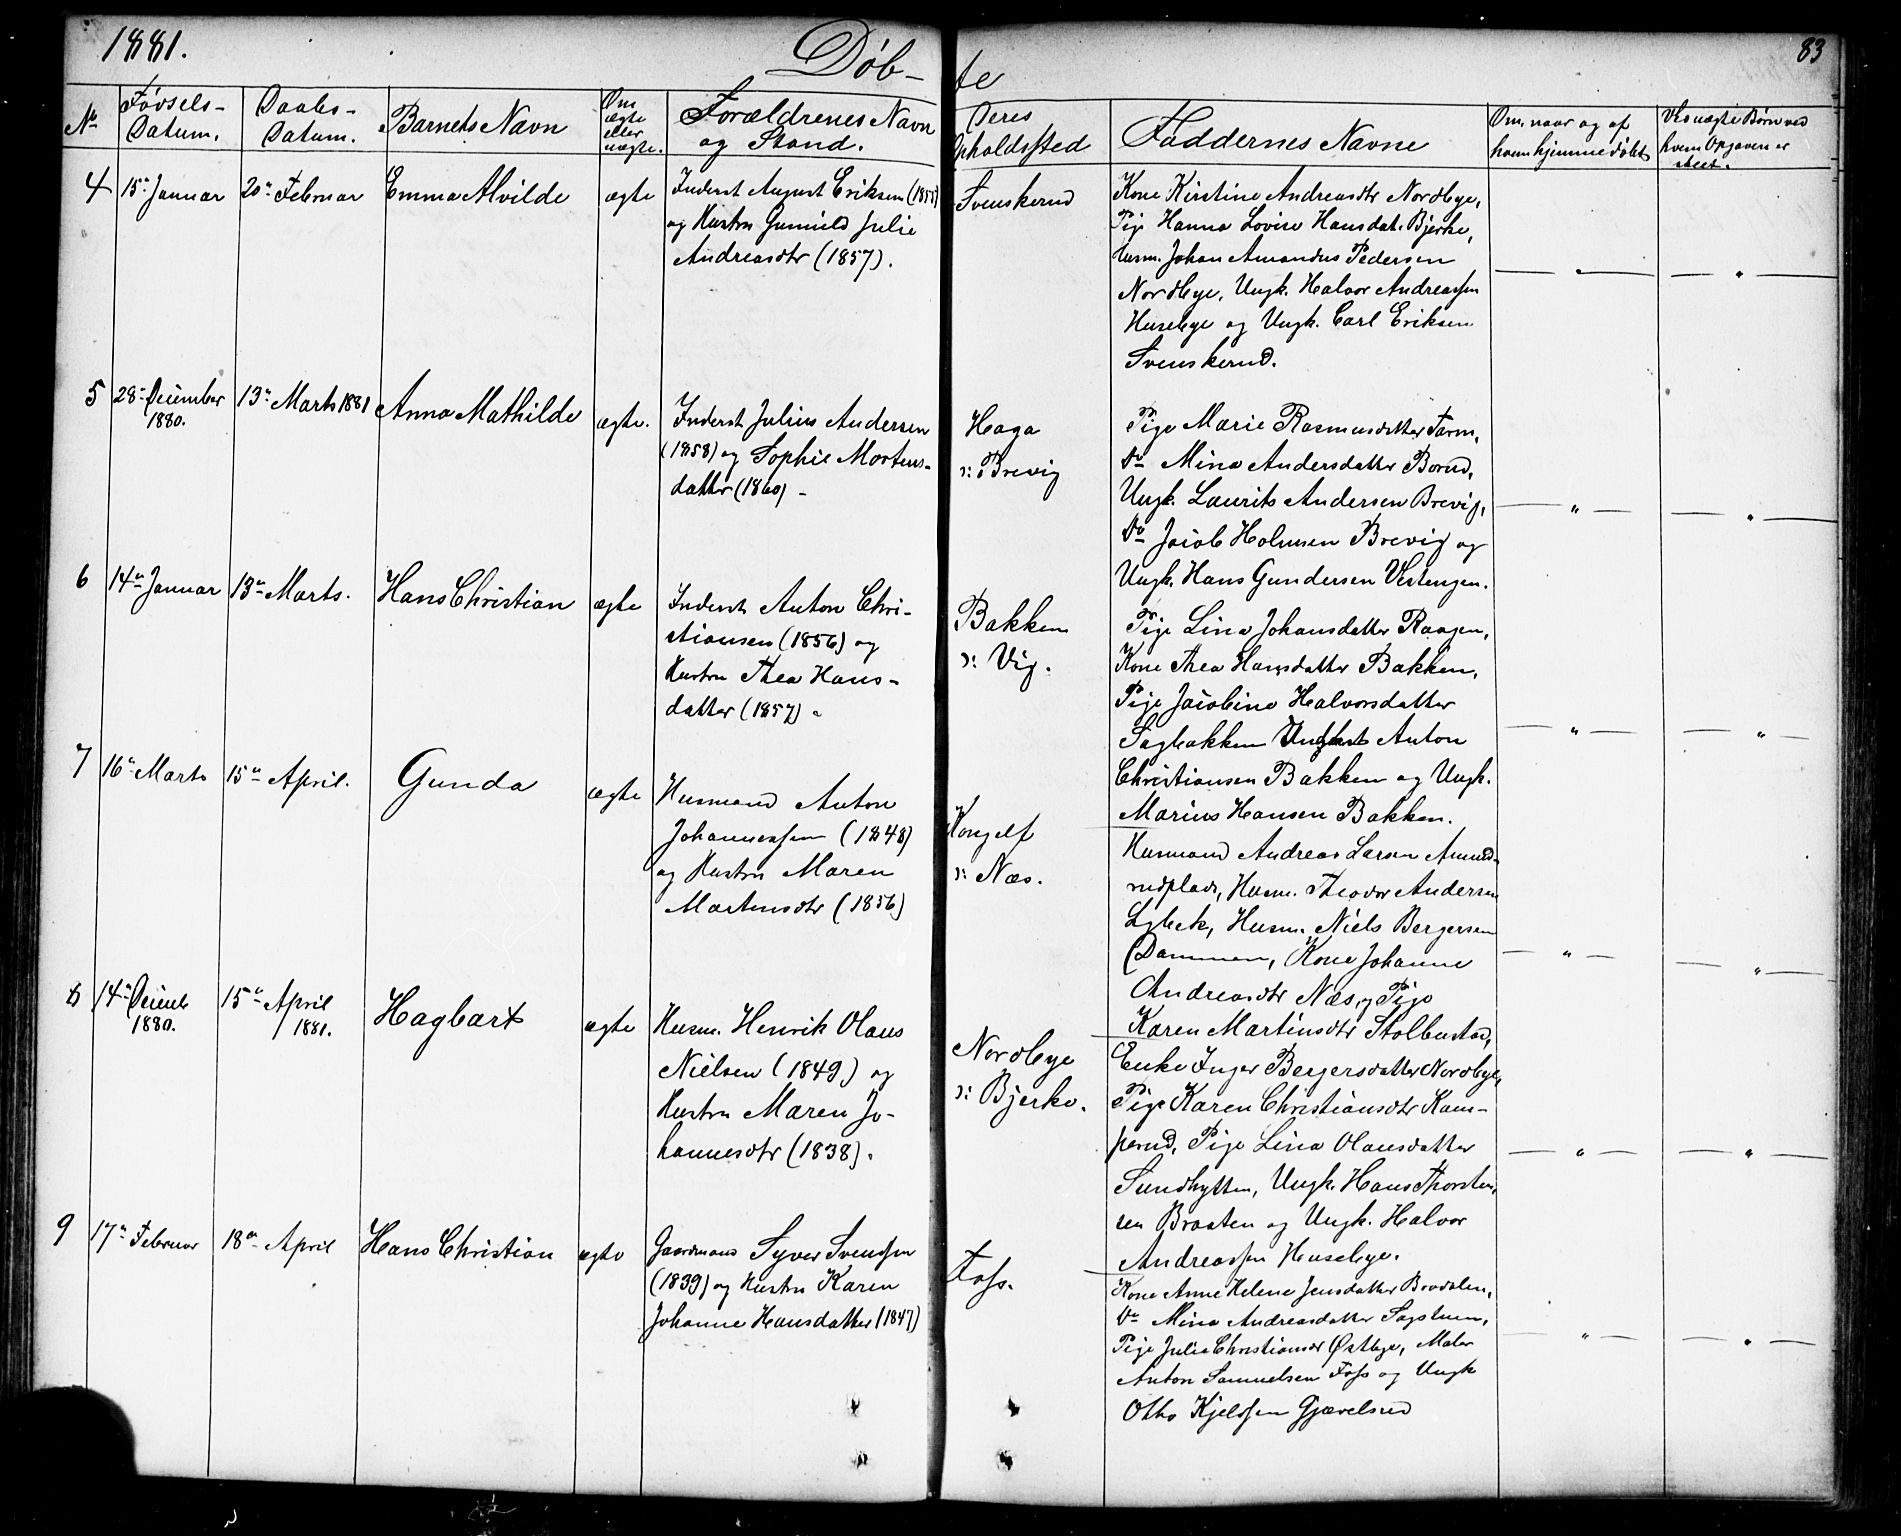 1881. Døb- te 83
No
Fødsels-
Datum.
Daabs-
Datum.
Barnets Navn
Om
ægte
eller
uægte.
Forældrenes Navn
og Stand.
Deres
Opholdssted
Faddernes Navne
Om, naar og af
hvem hjemmedøbt
Ved uægte Børn ved
hvem Opgaven er
skeet.
4 15de Januar 20de Februar Emma Alvilde ægte
Inderst August Eriksen (1855)
og Hustru Gunnild Julie
Andreasdtr (1857).
Svenskerud
Kone Kirstine Andreasdtr Nordbye,
Pige Hanna Lovise Hansdat. Bjerke,
Husm. Johan Amandus Pedersen
Nordbye, Ungk. Halvor Andreassen
Husebye og Ungk. Carl Eriksen
Svenskerud.
5 28de December
1880.
13de Marts 1881 Anna Mathilde ægte.
Inderst Julius Andersen
(1858) og Sophie Mortens-
datter (1860) -
Haga
ɔ: Brevig
Pige Marie Rasmusdatter Tørm,
Do Mina Andersdatter Borud,
Ungk. Laurits Andersen Brevig,
Do Jacob Holmsen Brevig og
Ungk. Hans Gundersen Vestengen.
6 14de Januar 13de Marts. Hans Christian ægte
Inderst Anton Chri-
stiansen (1856) og
Hustru Thea Hans-
datter (1857) -
Bakken
ɔ: Vig.
Pige Lina Johansdatter Raagen,
Kone Thea Hansdatter Bakken,
Pige Jacobine Halvorsdatter
Sagbakken Anton
Christiansen Bakken og Ungk.
Marius Hansen Bakken.
7 16de Marts 15de April. Gunda ægte
Husmand Anton
Johannessen (1848)
og Hustru Maren
Martinsdtr (1856)
Kongelf
ɔ: Næs.
Husmand Andreas Larsen Amund-
rudplads, Husm. Theodor Andersen
Lybek, Husm. Niels Bergersen
Dammen, Kone Johanne
Andreasdtr Næs, og Pige
Karen Martinsdtr Stolbustad,
8 14de Decemb
1880.
15de April
1881.
Hagbart ægte
Husm. Henrik Olaus
Nielsen (1849) og
Hustru Maren Jo-
hannesdtr (1838).
Nordbye
ɔ: Bjerke.
Enke Inger Bergersdatter Nordbye,
Pige Karen Christiansdtr Kam-
perud, Pige Lina Olausdatter
Sundhytten, Ungk. Hans Thorsten-
sen Braaten og Ungk. Halvor
Andreassen Husebye.
9 17de Februar 18de April Hans Christian ægte
Gaardmand Syver Svendsen
(1839) og Hustru Karen
Johanne Hansdatter (1847)
Foss.
Kone Anne Helene Jensdatter Bradalen,
Do Mina Andreasdatter Sagstuen,
Pige Julie Christiansdr Østbye, Maler
Anton Samuelsen Foss og Ungk
Otto Kjeldsen Gjævelsrud